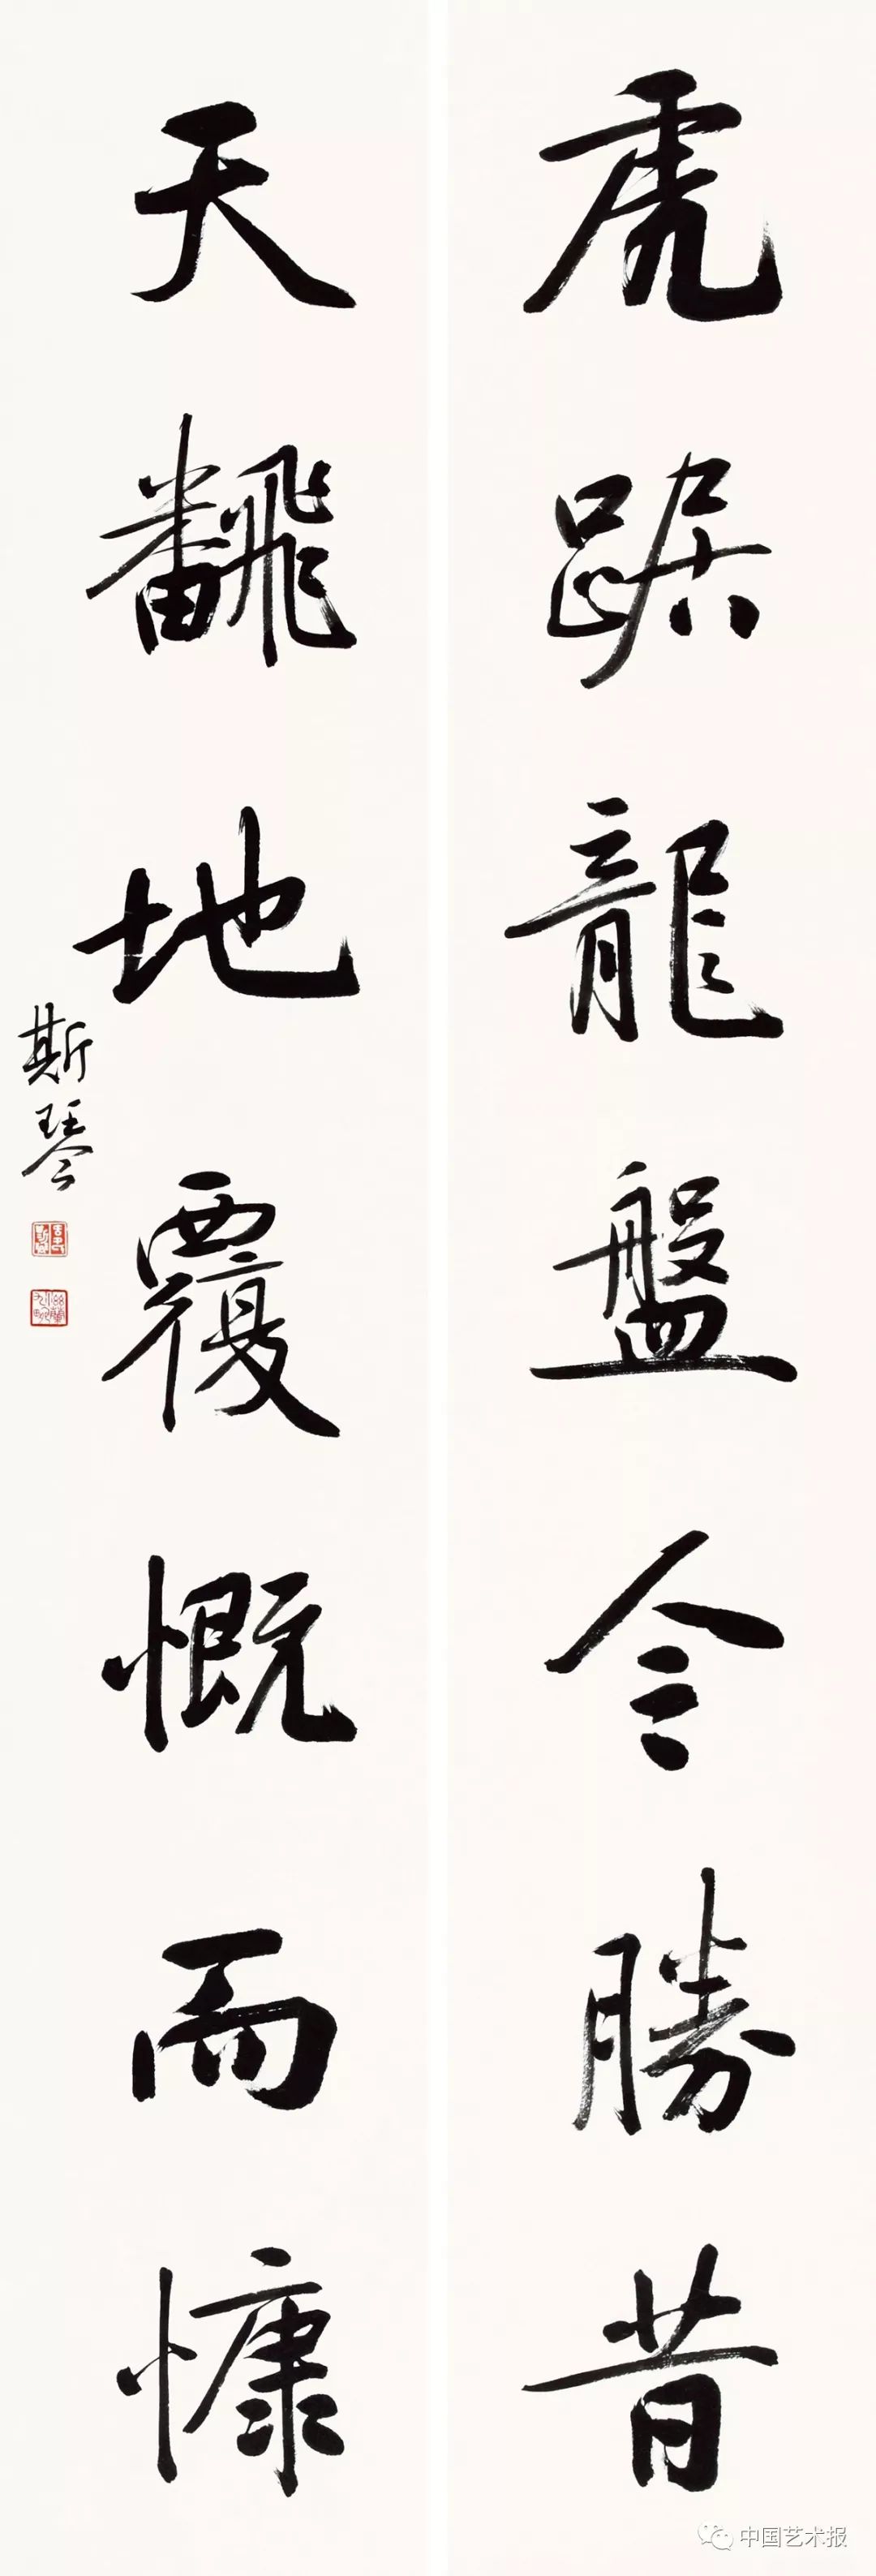 虎踞龍盤今勝昔
天飜地覆慨而慷
斯琴
中国艺术报